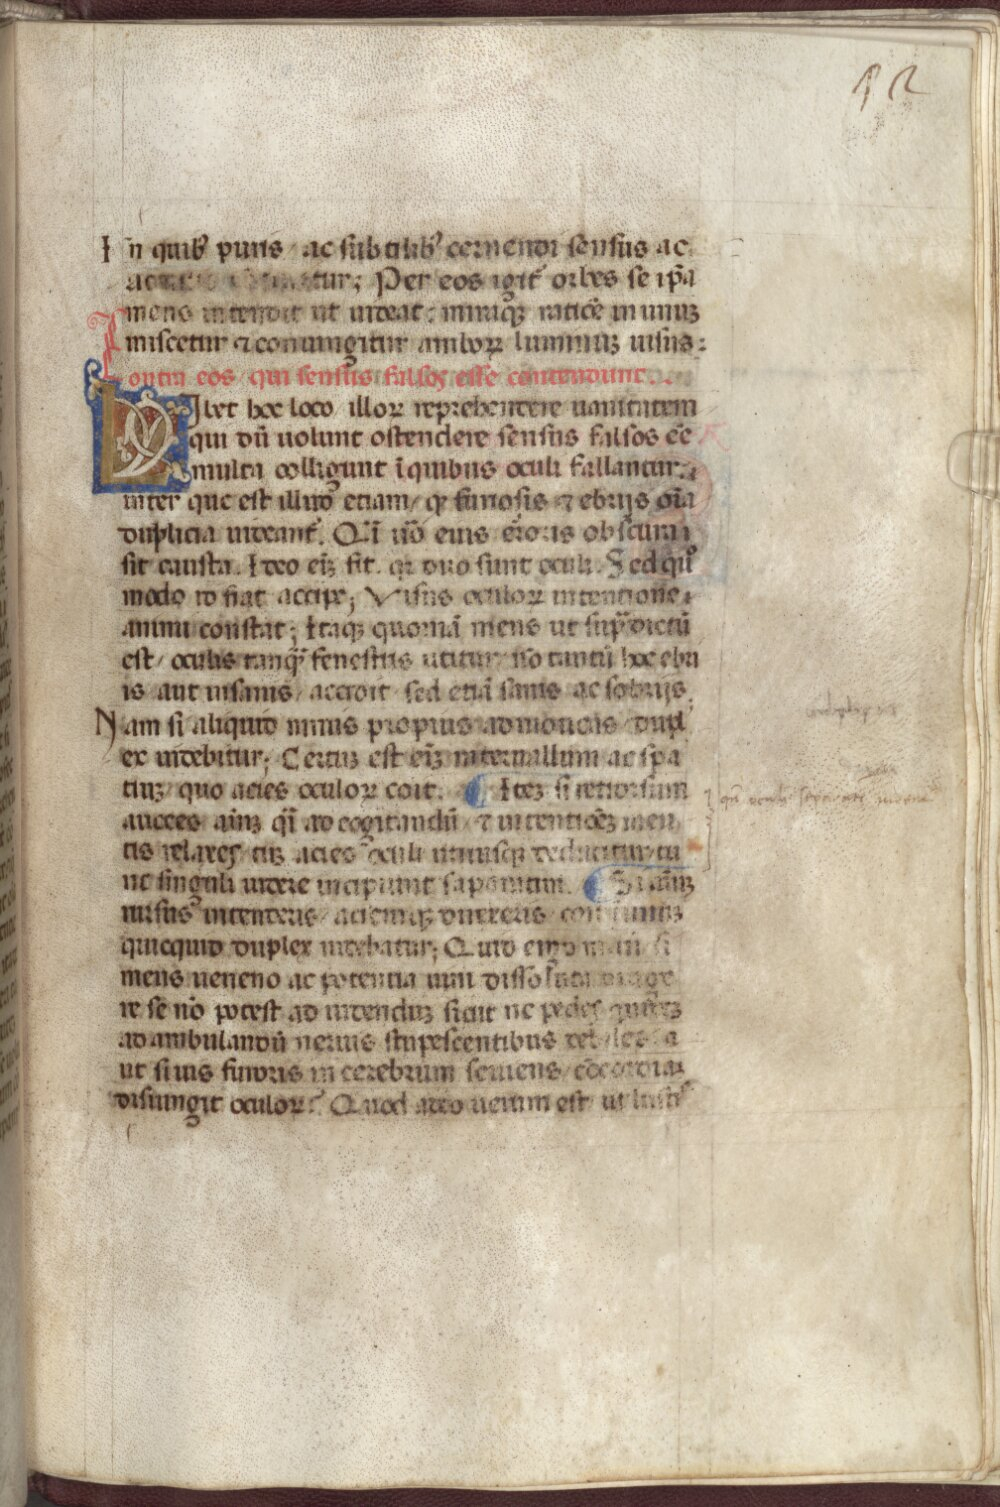 12
In quibꝰ puris ac subtilibꝰ cernendi sensus ac
tur; Per eos igit̄ orbes se ip̄a
mens intendit ut uideat: miraqꝫ ratiōe in unuꝫ
miscetur ⁊ coniungitur amborꝝ luminuꝫ uisus:
Contra eos qui sensus falsos esse contendunt.
Libet hoc loco illorꝝ reprehendere uanitatem
qui dū uolunt ostendere sensus falsos ēe
multa colligunt ī quibus oculi fallantur
inter que est illud etiam qꝫ furiosis ⁊ ebrijs oīa
duplicia uideant̄. Qī uō eius erroris obscura
sit causa. Ideo eīꝫ fit. qꝛ duo sunt oculi. Sed quō
modo id fiat accipe; Visus oculorꝝ intentione
animi constat; Itaqꝫ quoniā mens ut supͣ dictū
est oculis tanqꝫ fenestris utitur nō tantū hoc ebri
is aut insanis accidit sed etiā sanis ac sobrijs
Nam si aliquid nimis propius admoueas dupl
ex uidebitur; Certuꝫ est eīꝫ interuallum ac spa
tiuꝫ quo acies oculorꝝ coit. Iteꝫ si retrorsum
auoces aīuꝫ qī ad cogitandū ⁊ intentiōeꝫ men
tis relaxes tuꝫ acies oculi utriusqꝫ deducitur tū
ut singuli uidere incipiunt saparatim. Si aīuꝫ
rursus intenderis aciemqꝫ direxeris coit in unuꝫ
quicquid duplex uidebatur; Quid ergo mirū si
mens ueneno ac potentia uini dissoluta dirige
re se nō potest ad uidenduꝫ sicut nc pedes
ad ambulandū neruis stupescentibus debiles a
ut si uis furoris in cerebrum seuiens cōcordiaꝫ
disiungit oculorꝝ? Quod adeo uerum est ut